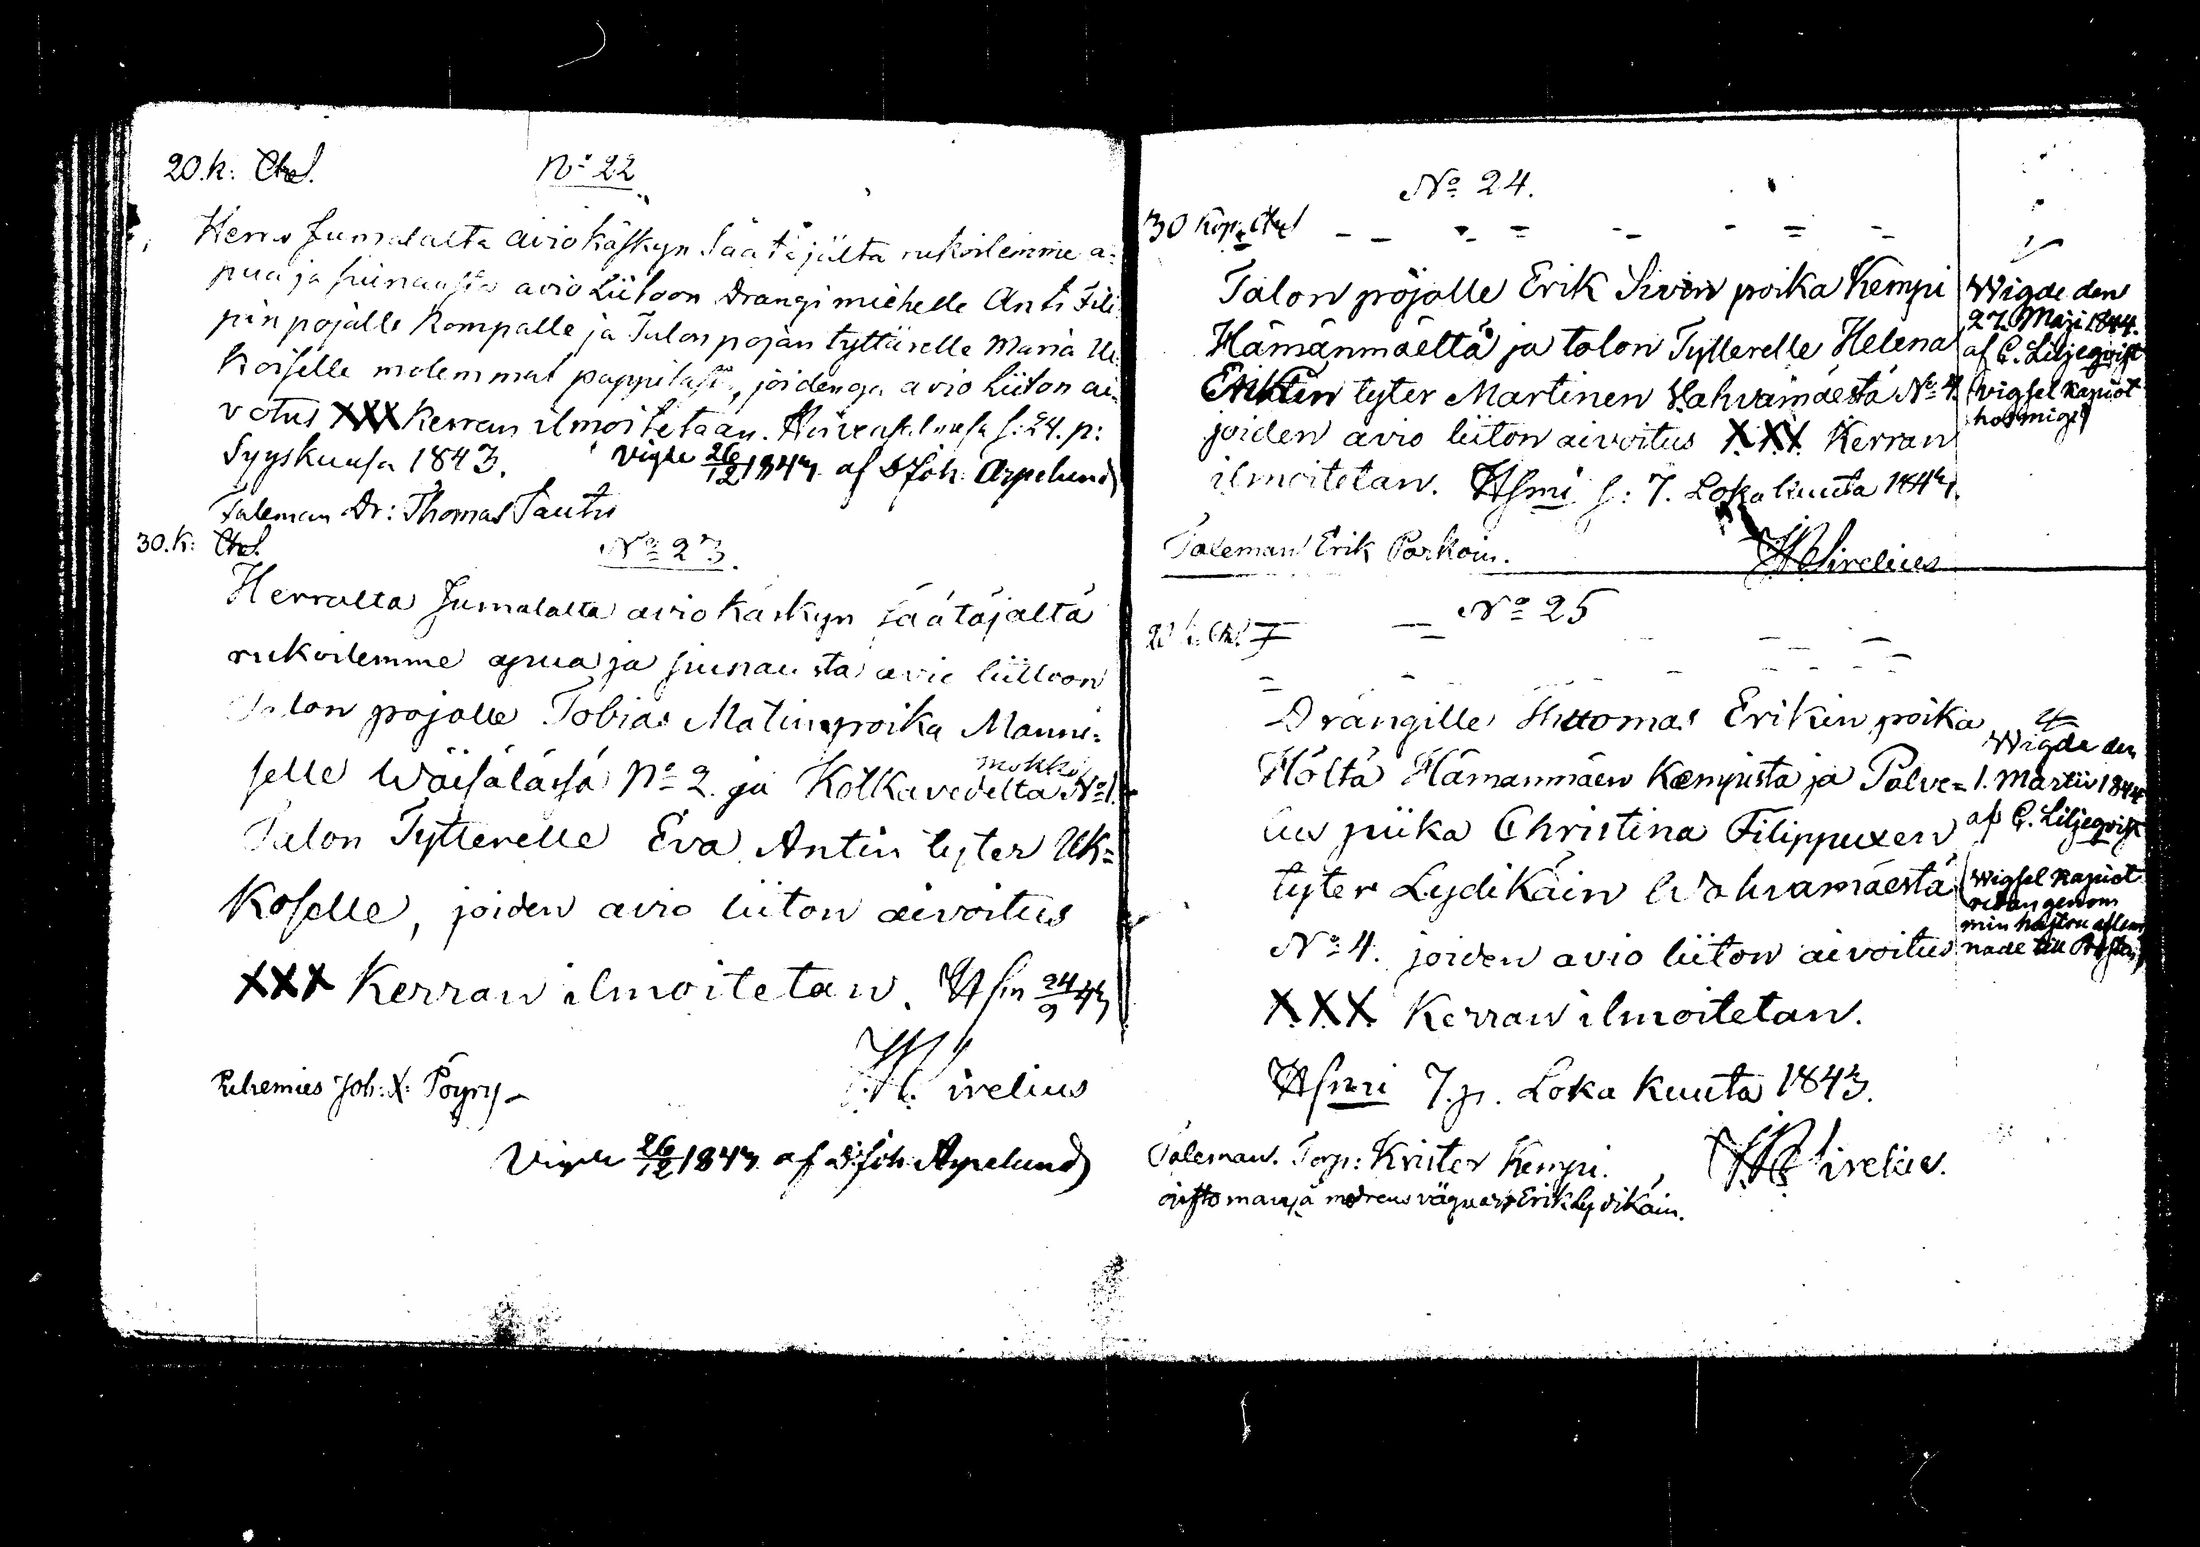 20.k: Ctrl.
No 22
Herra Jumalalta aviokäskyn Säätäjältä rukoilemme a=
pua ja siunausta avio Liitoon Drangi miehelle Anti Fili
pin pojalle Kompalle ja Talon pojan tyttärelle Maria Uk
koiselle molemmat pappilasta, joidenga avio Liiton ai=
votus XXX kerran ilmoitetaan. s: 24. p:
Syyskuusa 1843.
Vigde 26/12 1843 af D Joh. Arpelund
Taleman Dr: Thomas Tautu
30.k: Ctrl.
No 23.
Herralta Jumalalta avio käskyn säätäjältä
rukoilemme apua ja siunausta avio liittoon
Talon pojalle Tobias Matinpoika Manni=
selle Wäisälässä No 2. ja Kolkavedeltä mokki No 1.
Talon Tytterelle Eva Antin tyter Uk=
koselle, joiden avio liiton aivoitus
XXX Kerran ilmoitetan. Hsm 24/9 43
H. Sirelius
Puhemies Joh: X: Pöyry
Vigde 26/12 1843 af D: Joh. Arpelund
No 24.
30 Kop. Ctrl
Talon pojalle Erik Sivin poika Kempi
Hämänmäeltä ja talon Tytterelle Helena
Erikin tyter Martinen Wahvamäestä No 4.
joiden avio liiton aivoitus XXX Kerran
ilmoitetan. Hsmi s: 7. Lokakuuta 1843.
Taleman Erik Parkoin.
HR Sirelius
Wigde den
27. Maji 1844.
af C. Liljeqvist
(vigsel kapiot
hos mig)
No 25
20 k. Ctrl.
Drängille Thomas Erikin poika
Höltä Hämänmäen Kempistä ja Palve=
lus piika Christina Filippuxen
tyter Lydikäin Wahvamäestä
No 4. joiden avio liiton aivoitus
XXX Kerran ilmoitetan.
Hsmi 7.p. Loka kuuta 1843.
Taleman. Torp: Krister Kempi.
HR Sirelius.
giftoman å modrens vägnar Erik Lydikäin.
Wigde den
1. Martii 1844
af C. Liljeqvist
(Wigsel kapiot
redan genom
min hustru aflem
nade till Prosten)